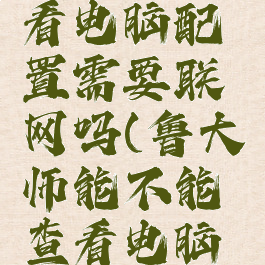 看电脑配
置需要联
网吗(鲁大
师能不能
查看电脑